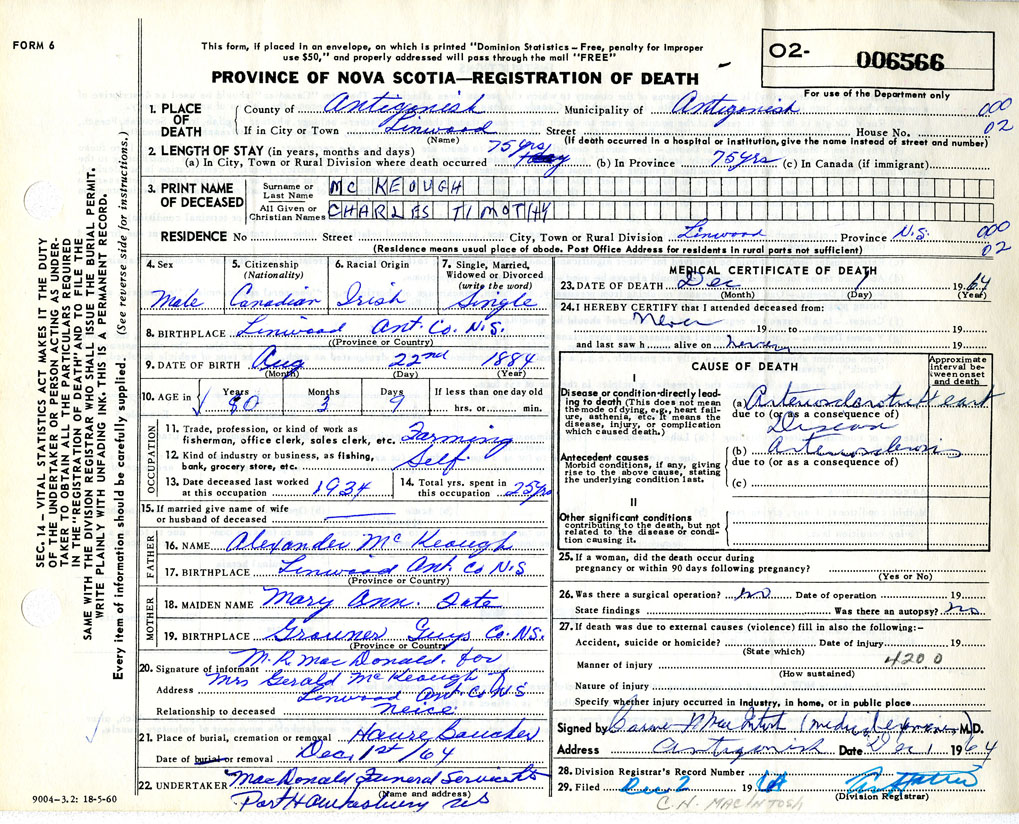 FORM 6
This form, if placed in an envelope, on which is printed "Dominion Statistics – Free, penalty for improper
use $50," and properly addressed will pass through the mail "FREE"
PROVINCE OF NOVA SCOTIA—REGISTRATION OF DEATH
02- 006566
For use of the Department only
SEC. 14 – VITAL STATISTICS ACT MAKES IT THE DUTY
OF THE UNDERTAKER OR PERSON ACTING AS UNDER-
TAKER TO OBTAIN ALL THE PARTICULARS REQUIRED
IN THE "REGISTRATION OF DEATH" AND TO FILE THE
SAME WITH THE DIVISION REGISTRAR WHO SHALL ISSUE THE BURIAL PERMIT.
WRITE PLAINLY WITH UNFADING INK. THIS IS A PERMANENT RECORD.
Every item of information should be carefully supplied. (See reverse side for instructions.)
1. PLACE OF DEATH County of Antigonish Municipality of Antigonish 000
If in City or Town Linwood Street House No. 02
(Name) (If death occurred in a hospital or institution, give the name instead of street and number)
2. LENGTH OF STAY (in years, months and days)
(a) In City, Town or Rural Division where death occurred 75yrs (b) In Province 75yrs (c) In Canada (if immigrant)
3. PRINT NAME OF DECEASED Surname or Last Name MC KEOUGH
All Given or Christian Names CHARLES TIMOTHY
RESIDENCE No Street City, Town or Rural Division Linwood Province N.S. 000
(Residence means usual place of abode. Post Office Address for residents in rural parts not sufficient) 02
4. Sex Male
5. Citizenship (Nationality) Canadian
6. Racial Origin Irish
7. Single, Married, Widowed or Divorced (write the word) Single
8. BIRTHPLACE Linwood Ant. Co. N.S.
(Province or Country)
9. DATE OF BIRTH Aug 22nd 1884
(Month) (Day) (Year)
10. AGE in Years 80 Months 3 Days 9 If less than one day old
hrs. or min.
OCCUPATION
11. Trade, profession, or kind of work as
fisherman, office clerk, sales clerk, etc. Farming
12. Kind of industry or business, as fishing,
bank, grocery store, etc. Self.
13. Date deceased last worked at this occupation 1934
14. Total yrs. spent in this occupation 25yrs
15. If married give name of wife
or husband of deceased
FATHER
16. NAME Alexander McKeough
17. BIRTHPLACE Linwood Ant. Co N.S
(Province or Country)
MOTHER
18. MAIDEN NAME Mary Ann.
19. BIRTHPLACE Guys Co. N.S.
(Province or Country)
20. Signature of informant M.R. MacDonald. for
Mrs Gerald McKeough
Address Linwood Ant. Co N.S
Relationship to deceased neice
21. Place of burial, cremation or removal Havre Boucher
Date of burial or removal Dec. 1st /64
22. UNDERTAKER MacDonald Funeral Service
(Name and address)
Port Hawkesbury NS
9004–3.2: 18-5-60
MEDICAL CERTIFICATE OF DEATH
23. DATE OF DEATH Dec 1 1964
(Month) (Day) (Year)
24. I HEREBY CERTIFY that I attended deceased from:
Never 19 to 19
and last saw h alive on never 19
CAUSE OF DEATH
Approximate interval between onset and death
I
Disease or condition directly leading to death (This does not mean the mode of dying, e.g., heart failure, asthenia, etc. It means the disease, injury, or complication which caused death.)
(a) Heart
due to (or as a consequence of)
Disease
Antecedent causes
Morbid conditions, if any, giving rise to the above cause, stating the underlying condition last.
(b) Arteriosclerosis
due to (or as a consequence of)
(c)
II
Other significant conditions
contributing to the death, but not related to the disease or condition causing it.
25. If a woman, did the death occur during
pregnancy or within 90 days following pregnancy?
(Yes or No)
26. Was there a surgical operation? no Date of operation 19
State findings Was there an autopsy? no
27. If death was due to external causes (violence) fill in also the following:–
Accident, suicide or homicide? Date of injury 19
(State which)
4200
Manner of injury
(How sustained)
Nature of injury
Specify whether injury occurred in industry, in home, or in public place
Signed by MacIntosh (medical examiner) M.D.
Address Antigonish Date Dec 1 1964
28. Division Registrar's Record Number
29. Filed Dec 2 1964
(Division Registrar)
C.N. MACINTOSH